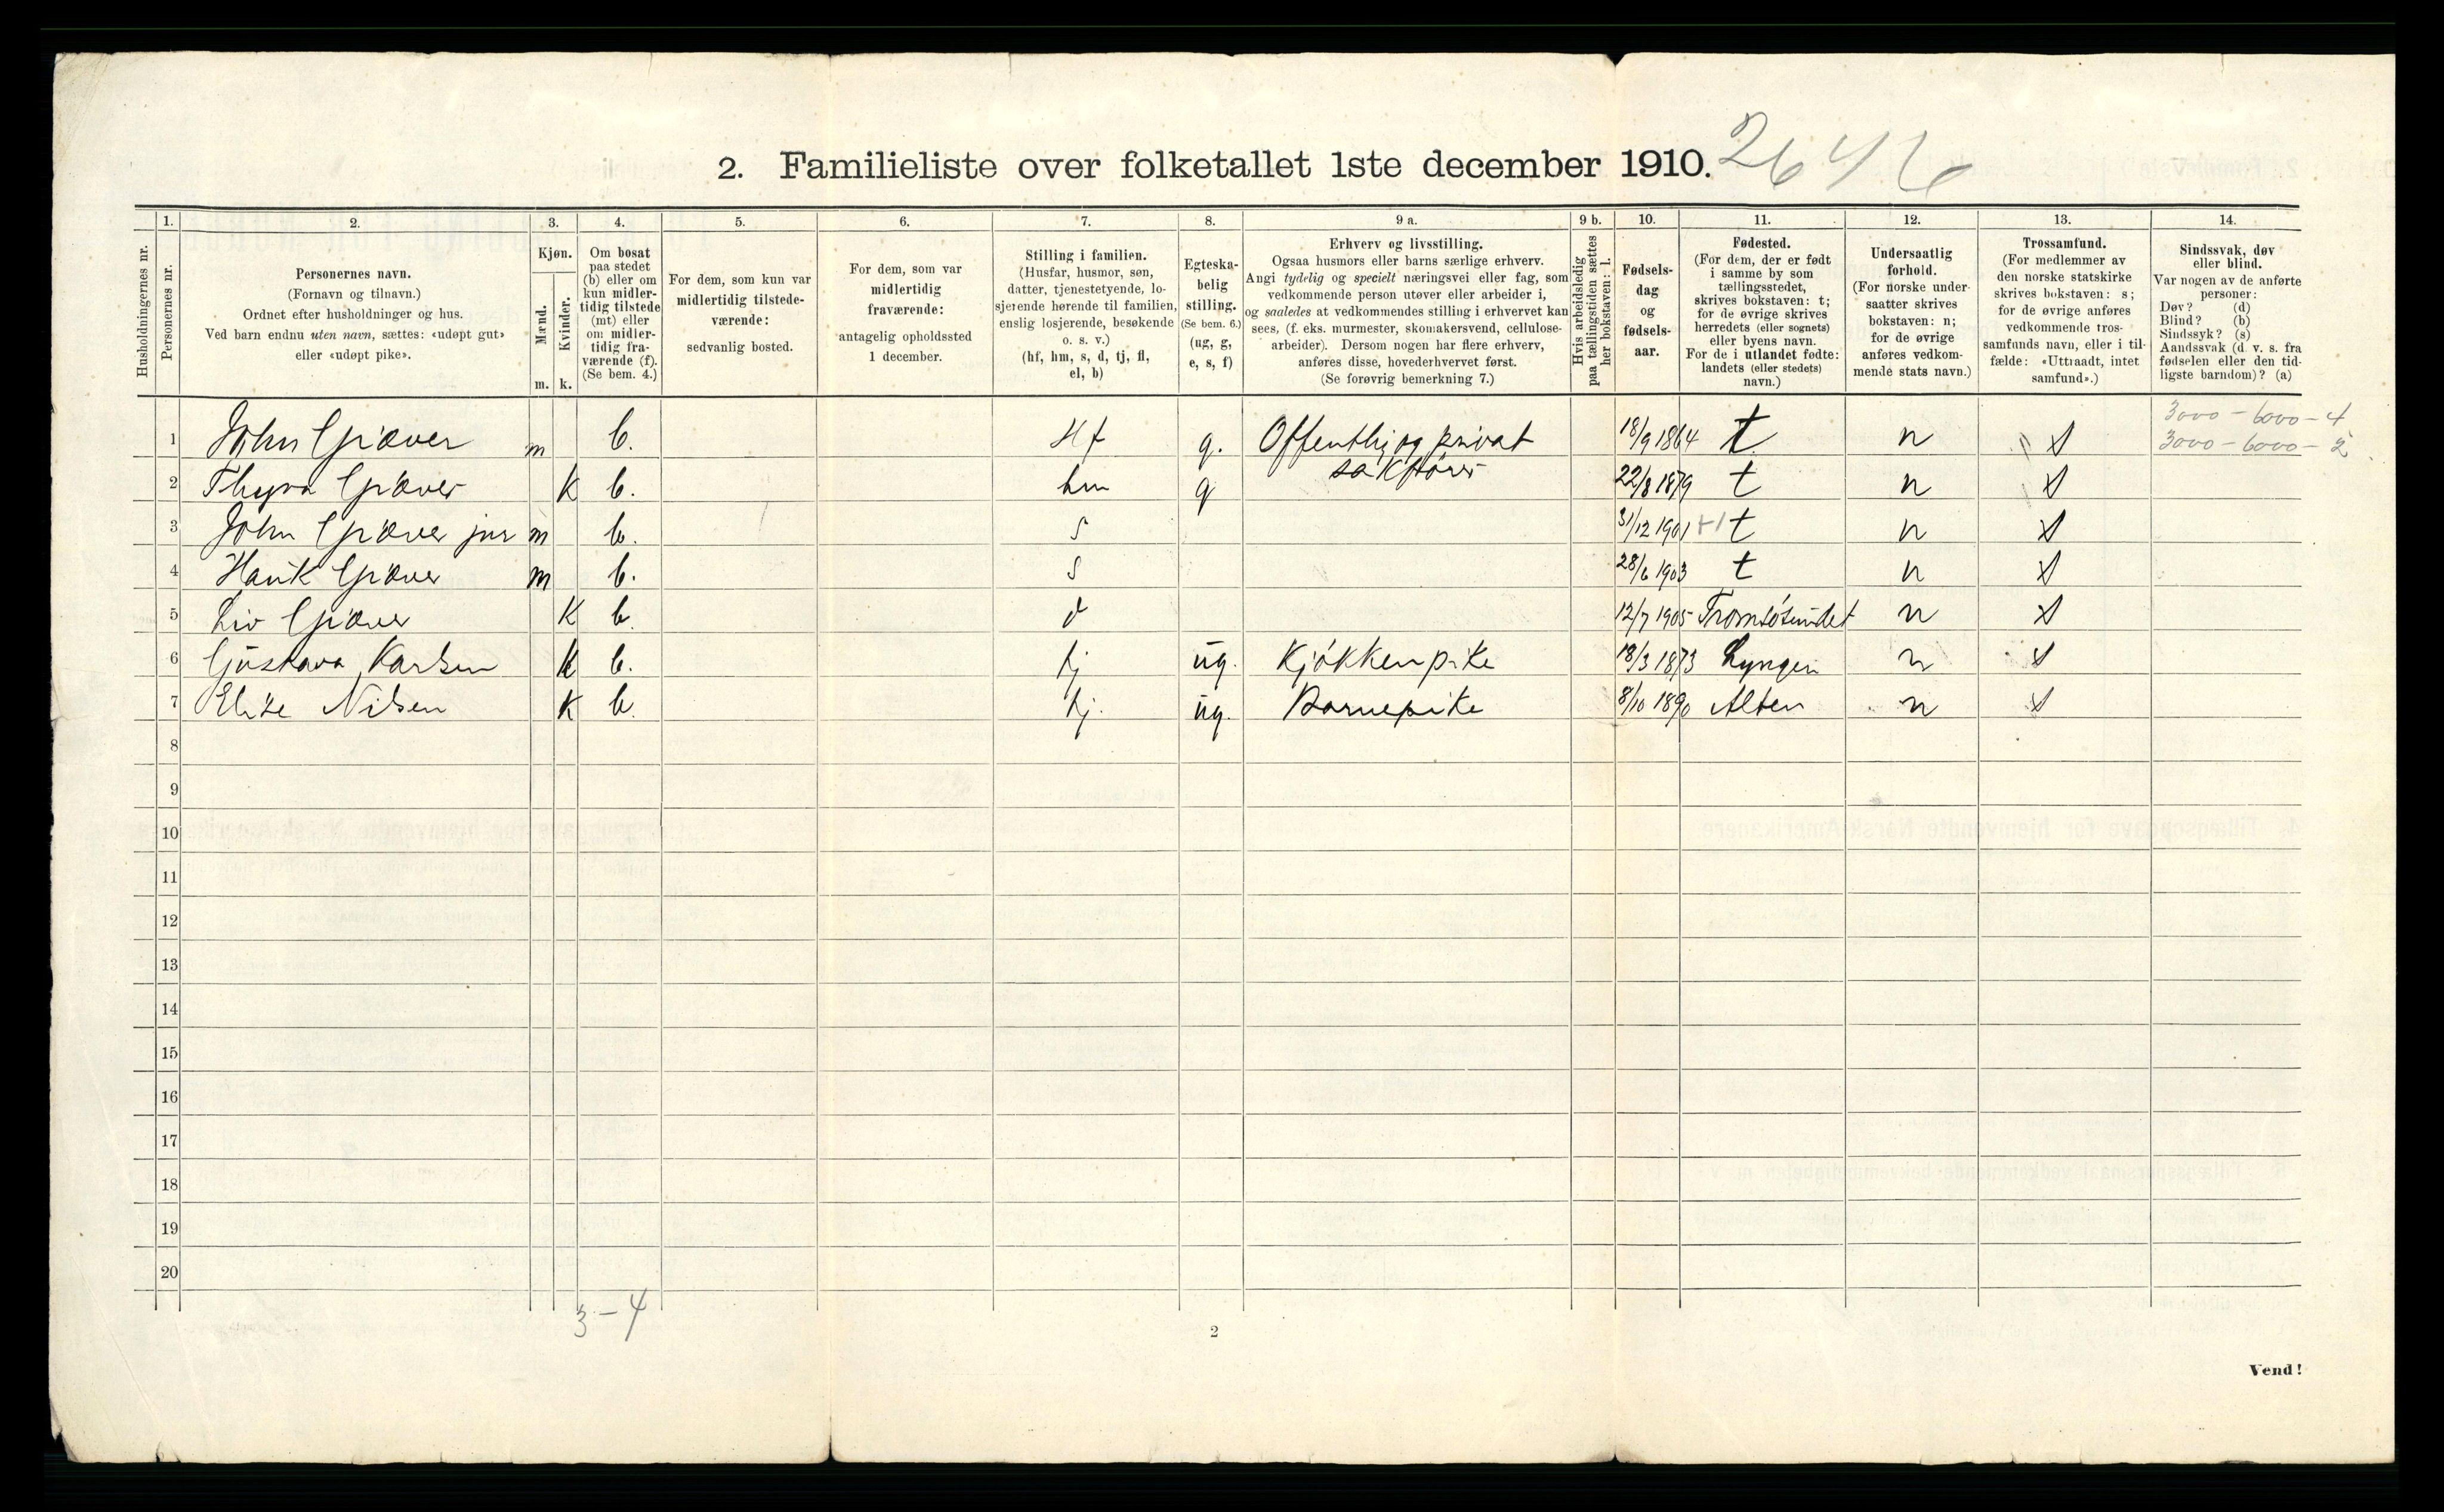 2. Familieliste over folketallet 1ste december 1910.
Husholdningernes nr.
1.
Personernes nr.
2.
Personernes navn.
(Fornavn og tilnavn.)
Ordnet efter husholdninger og hus.
Ved barn endnu uten navn, sættes: «udøpt gut»
eller «udøpt pike».
3.
Kjøn.
Mænd.
m.
Kvinder.
k.
4.
Om bosat
paa stedet
(b) eller om
kun midler-
tidig tilstede
(mt) eller
om midler-
tidig fra-
værende (f).
(Se bem. 4.)
5.
For dem, som kun var
midlertidig tilstede-
værende:
sedvanlig bosted.
6.
For dem, som var
midlertidig
fraværende:
antagelig opholdssted
1 december.
7.
Stilling i familien.
(Husfar, husmor, søn,
datter, tjenestetyende, lo-
sjerende hørende til familien,
enslig losjerende, besøkende
o. s. v.)
(hf, hm, s, d, tj, fl,
el, b)
8.
Egteska-
belig
stilling.
(Se bem. 6.)
(ug, g,
e, s, f)
9 a.
Erhverv og livsstilling.
Ogsaa husmors eller barns særlige erhverv.
Angi tydelig og specielt næringsvei eller fag, som
vedkommende person utøver eller arbeider i,
og saaledes at vedkommendes stilling i erhvervet kan
sees, (f. eks. murmester, skomakersvend, cellulose-
arbeider). Dersom nogen har flere erhverv,
anføres disse, hovederhvervet først.
(Se forøvrig bemerkning 7.)
9 b.
Hvis arbeidsledig
paa tællingstiden sættes
her bokstaven: l.
10.
Fødsels-
dag
og
fødsels-
aar.
11.
Fødested.
(For dem, der er født
i samme by som
tællingsstedet,
skrives bokstaven: t;
for de øvrige skrives
herredets (eller sognets)
eller byens navn.
For de i utlandet fødte:
landets (eller stedets)
navn.)
12.
Undersaatlig
forhold.
(For norske under-
saatter skrives
bokstaven: n;
for de øvrige
anføres vedkom-
mende stats navn.)
13.
Trossamfund.
(For medlemmer av
den norske statskirke
skrives bokstaven: s;
for de øvrige anføres
vedkommende tros-
samfunds navn, eller i til-
fælde: «Uttraadt, intet
samfund».)
14.
Sindssvak, døv
eller blind.
Var nogen av de anførte
personer:
Døv? (d)
Blind? (b)
Sindssyk? (s)
Aandssvak (d. v. s. fra
fødselen eller den tid-
ligste barndom)? (a)
3000 - 6000 - 4
1 John Giæver m b. Hf g. Offentlig og privat 18/9 1864 t n s 3000 - 6000 - 2
sakfører
2 Thyra Giæver K b. hm g 22/8 1879 t n s
3 John Giæver jur m b. s 31/12 1901 t n s
4 Hauk Giæver m b. s 28/6 1903 t n s
5 Liv Giæver K b d 12/7 1905 Tromsösundet n s
6 Gustava Karlsen K b. tj ug. Kjökkenpike 18/3 1873 Lyngen n s
7 Elise Nilsen K b. tj. ug. Barnepike 8/10 1890 Alten n s
8
9
10
11
12
13
14
15
16
17
18
19
20
3 - 4
2
Vend!